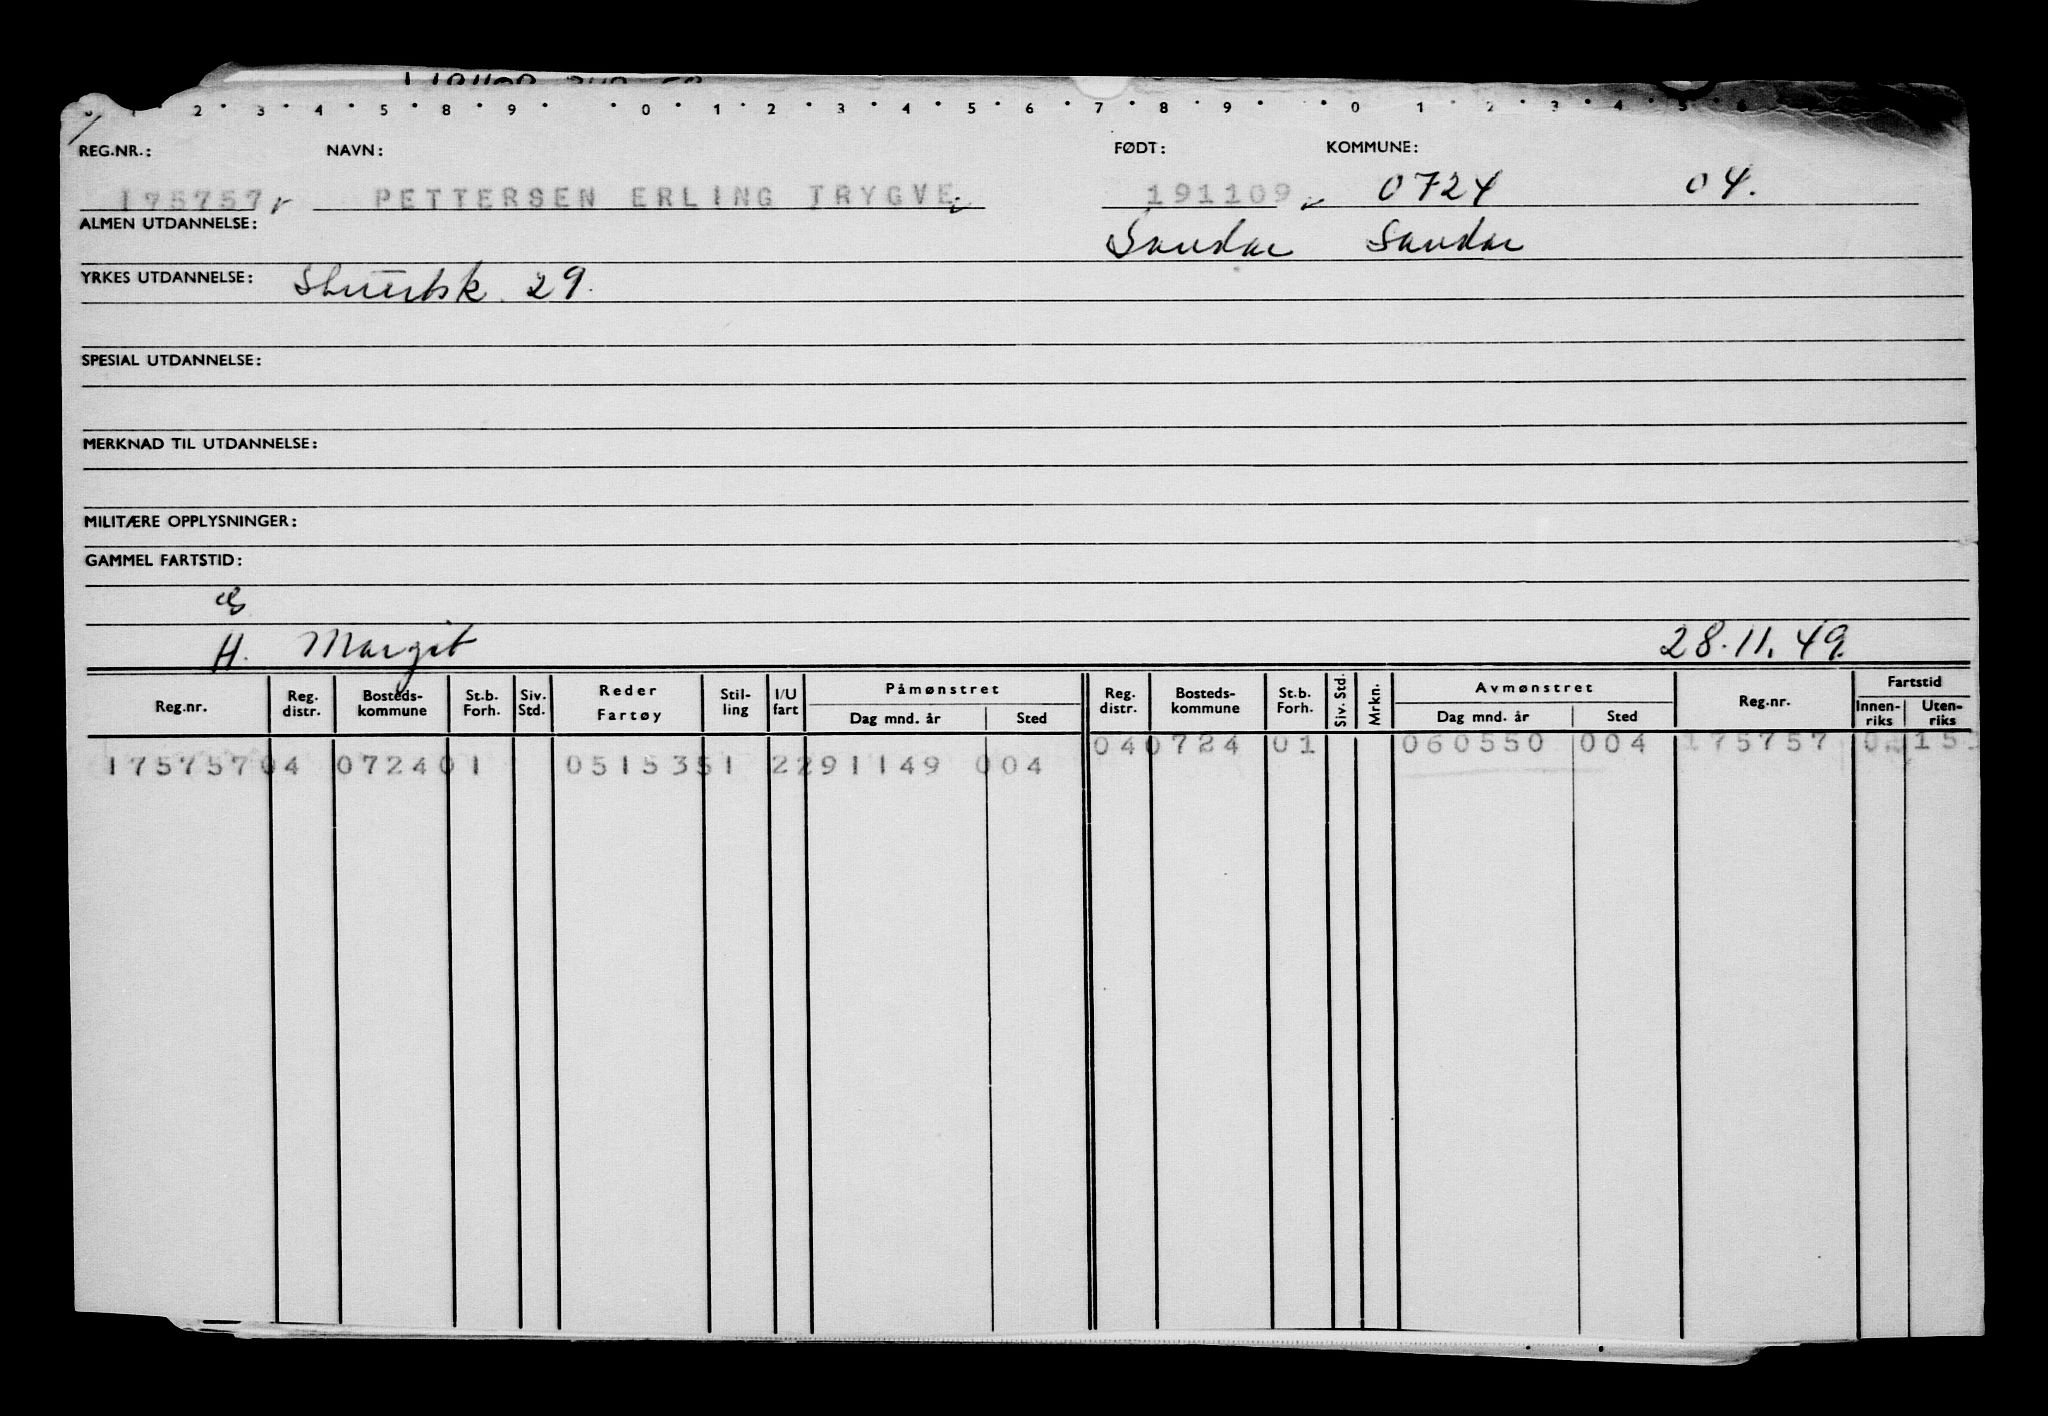 1 2 3 4 5 8 9 0 1 2 3 4 5 6 7 8 9 0 1 2 3 4 5 6
REG.NR.: NAVN: FØDT: KOMMUNE:
175757 PETTERSEN ERLING TRYGVE 191109 0724 04.
ALMEN UTDANNELSE: Sandar Sandar
YRKES UTDANNELSE: Stuertsk. 29.
SPESIAL UTDANNELSE:
MERKNAD TIL UTDANNELSE:
MILITÆRE OPPLYSNINGER:
GAMMEL FARTSTID:
H. Margit 28.11.49.
Reg.nr. Reg. distr. Bosteds- kommune St.b. Forh. Siv. Std. Reder Fartøy Stil- ling I/U fart Påmønstret Dag mnd. år Sted Reg. distr. Bosteds- kommune St.b. Forh. Siv. Std. Mrkn. Avmønstret Dag mnd. år Sted Reg.nr. Fartstid Innen- riks Uten- riks
040724 01 060550 004 175757
17575704 072401 0515351 2291149 004